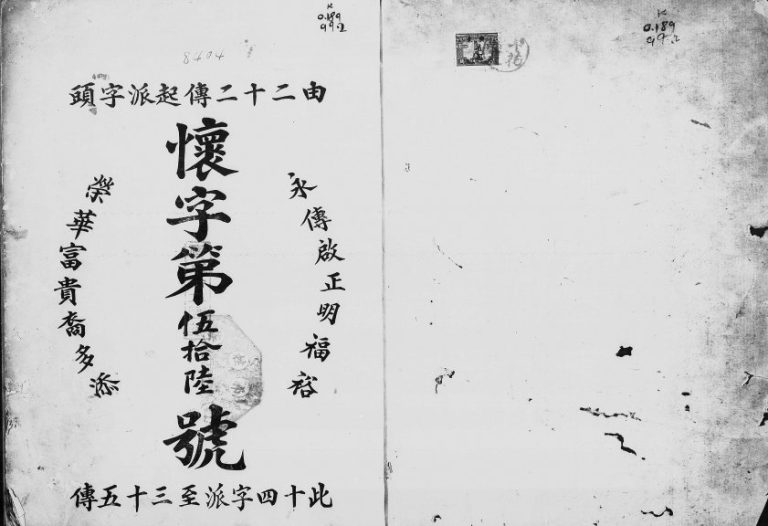 由二十二傳起派字頭
永傳啟正明福裕
懷字第伍拾陸號
榮華富貴裔多添
此十四字派至三十五傳
8404
K
0.189
99.2
K
0.189
99.2